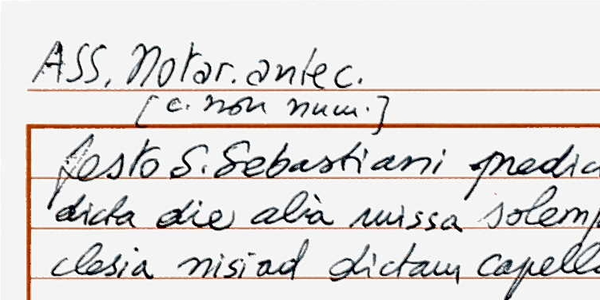 ASS. Notar. antec.
[c. non num.]
festo S. Sebastiani predic
dicta die alia missa solemp
clesia nisi ad dictam capella